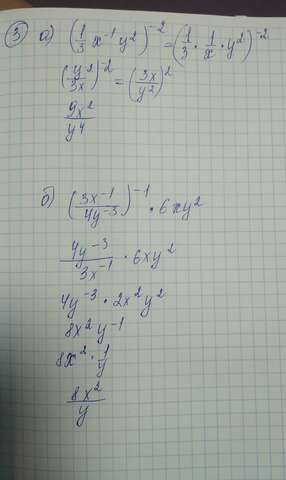 3 а) (1/3 x⁻¹ y²)⁻² = (1/3 · 1/x · y²)⁻²
(y²/3x)⁻² = (3x/y²)²
9x²/y⁴
б) (3x⁻¹/4y⁻³)⁻¹ · 6xy²
4y⁻³/3x⁻¹ · 6xy²
4y⁻³ · 2x²y²
8x²y⁻¹
8x² · 1/y
8x²/y